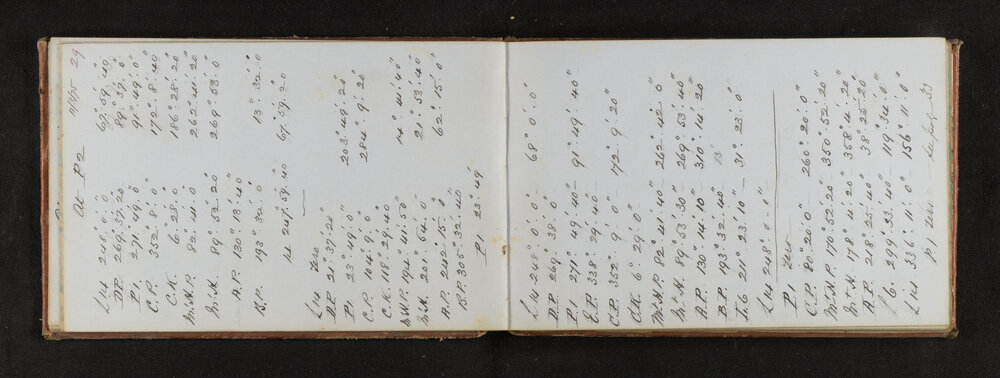 At P2 29
L14 248°:0':0" 67°:59':40"
D.P. 269°:37':20 89°:37':0
P1. 271°:49':0 91°:49':0"
C.P. 352°:8':0" 172°:8':40
C.K. 6°:28':0 186°:28':20"
McN.P. 82°:41':0 262°:41':20
McN. 89°:52':20 269°:53':0
A.P. 130°:13':40
B.P. 193°:32':0 13°:32':0
L4 247°:59':40 67°:59':20
Zero
D.P. 21°:37':20
P1. 23°:49':0" 203°:49':20"
C.P. 104°:9':0" 284°:9':20
C.K. 118°:29':40
McN.P. 194°:41':50 14°:41':40"
McN. 201°:54':0 21°:53':40
A.P. 242°:15':0 62°:15':0
B.P. 305°:32':40
P1 23°:49'
L14 248°:0':0" 68°:0':0"
D.P. 269°:38':0
P.1 271°:49':40 91°:49':40"
E.P. 338°:29':40
C.P. 352°:9':0" 172°:9':20"
C.K. 6°:29':0
McN.P. 82°:41':40" 262°:42':0
McN. 89°:53':30 269°:53':40
A.P. 130°:14':10" 310°:14':20
B.P. 193°:32':40 13
T.6 21°:23':10" 31°:23':0"
L14 248°:0':0"
P.1 Zero
C.P. 80°:20':0" 260°:20':0
McN.P. 170°:52':20 350°:52':20
McN. 178°:4':20 358°:4':20
A.P. 218°:25':40 38°:25':20
L6. 299°:33':40 119°:34':0
L14 336°:11':0" 156°:11':0
P.1 Zero